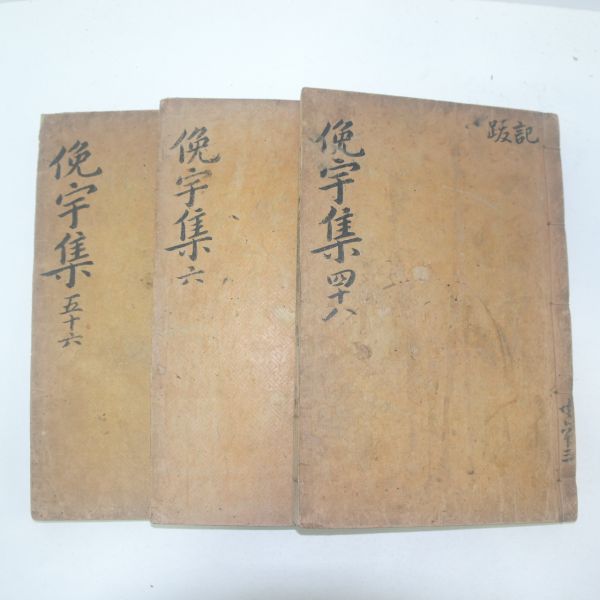 俛宇集 五十六
俛宇集 六
俛宇集 四十八
跋記